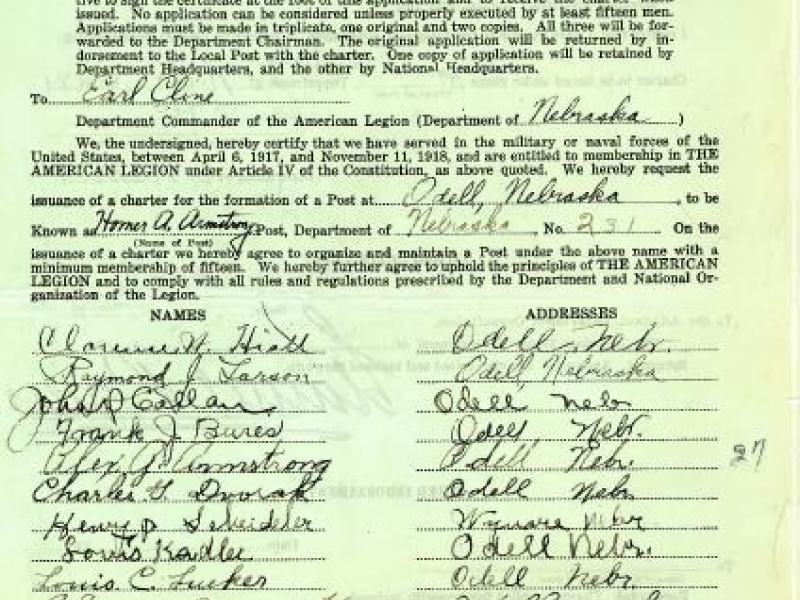 tive to sign the certificate at the foot of this application and to receive the charter when
issued. No application can be considered unless properly executed by at least fifteen men.
Applications must be made in triplicate, one original and two copies. All three will be for-
warded to the Department Chairman. The original application will be returned by in-
dorsement to the Local Post with the charter. One copy of application will be retained by
Department Headquarters, and the other by National Headquarters.
To Earl Cline
Department Commander of the American Legion (Department of Nebraska )
We, the undersigned, hereby certify that we have served in the military or naval forces of the
United States, between April 6, 1917, and November 11, 1918, and are entitled to membership in THE
AMERICAN LEGION under Article IV of the Constitution, as above quoted. We hereby request the
issuance of a charter for the formation of a Post at Odell, Nebraska , to be
Known as Homer A. Armstrong Post, Department of Nebraska , No. 231 On the
(Name of Post)
issuance of a charter we hereby agree to organize and maintain a Post under the above name with a
minimum membership of fifteen. We hereby further agree to uphold the principles of THE AMERICAN
LEGION and to comply with all rules and regulations prescribed by the Department and National Or-
ganization of the Legion.
NAMES ADDRESSES
Clarence N. Hiatt Odell, Nebr.
Raymond J Larson Odell, Nebraska
John Callan Odell Nebr
Frank J. Bures Odell Nebr.
Alex G. Armstrong Odell Nebr. 27
Charles Dvorak Odell Nebr.
Henry Nebr
Louis Kadlec Odell Nebr.
Louis C. Odell Nebr.